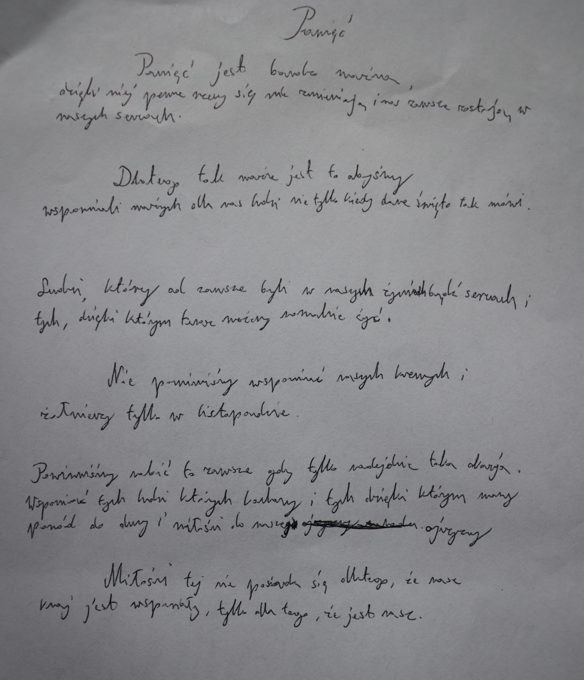 Pamięć
Pamięć jest bardzo ważna,
dzięki niej pewne rzeczy się nie zmieniają i na zawsze zostają w
naszych sercach.
Dlatego tak ważne jest to abyśmy
wspominali ważnych dla nas ludzi nie tylko kiedy dane święto tak mówi.
Ludzi, którzy od zawsze byli w naszych bądź sercach i
tych, dzięki którym teraz możemy normalnie żyć.
Nie powinniśmy wspominać naszych krewnych i
żołnierzy tylko w listopadzie.
Powinniśmy robić to zawsze gdy tylko nadejdzie taka okazja.
Wspominać tych ludzi których kochamy i tych dzięki którym mamy
powód do dumy i miłości do naszej ojczyzny
Miłości tej nie posiada się dlatego, że nasz
kraj jest wspaniały, tylko dla tego, że jest nasz.